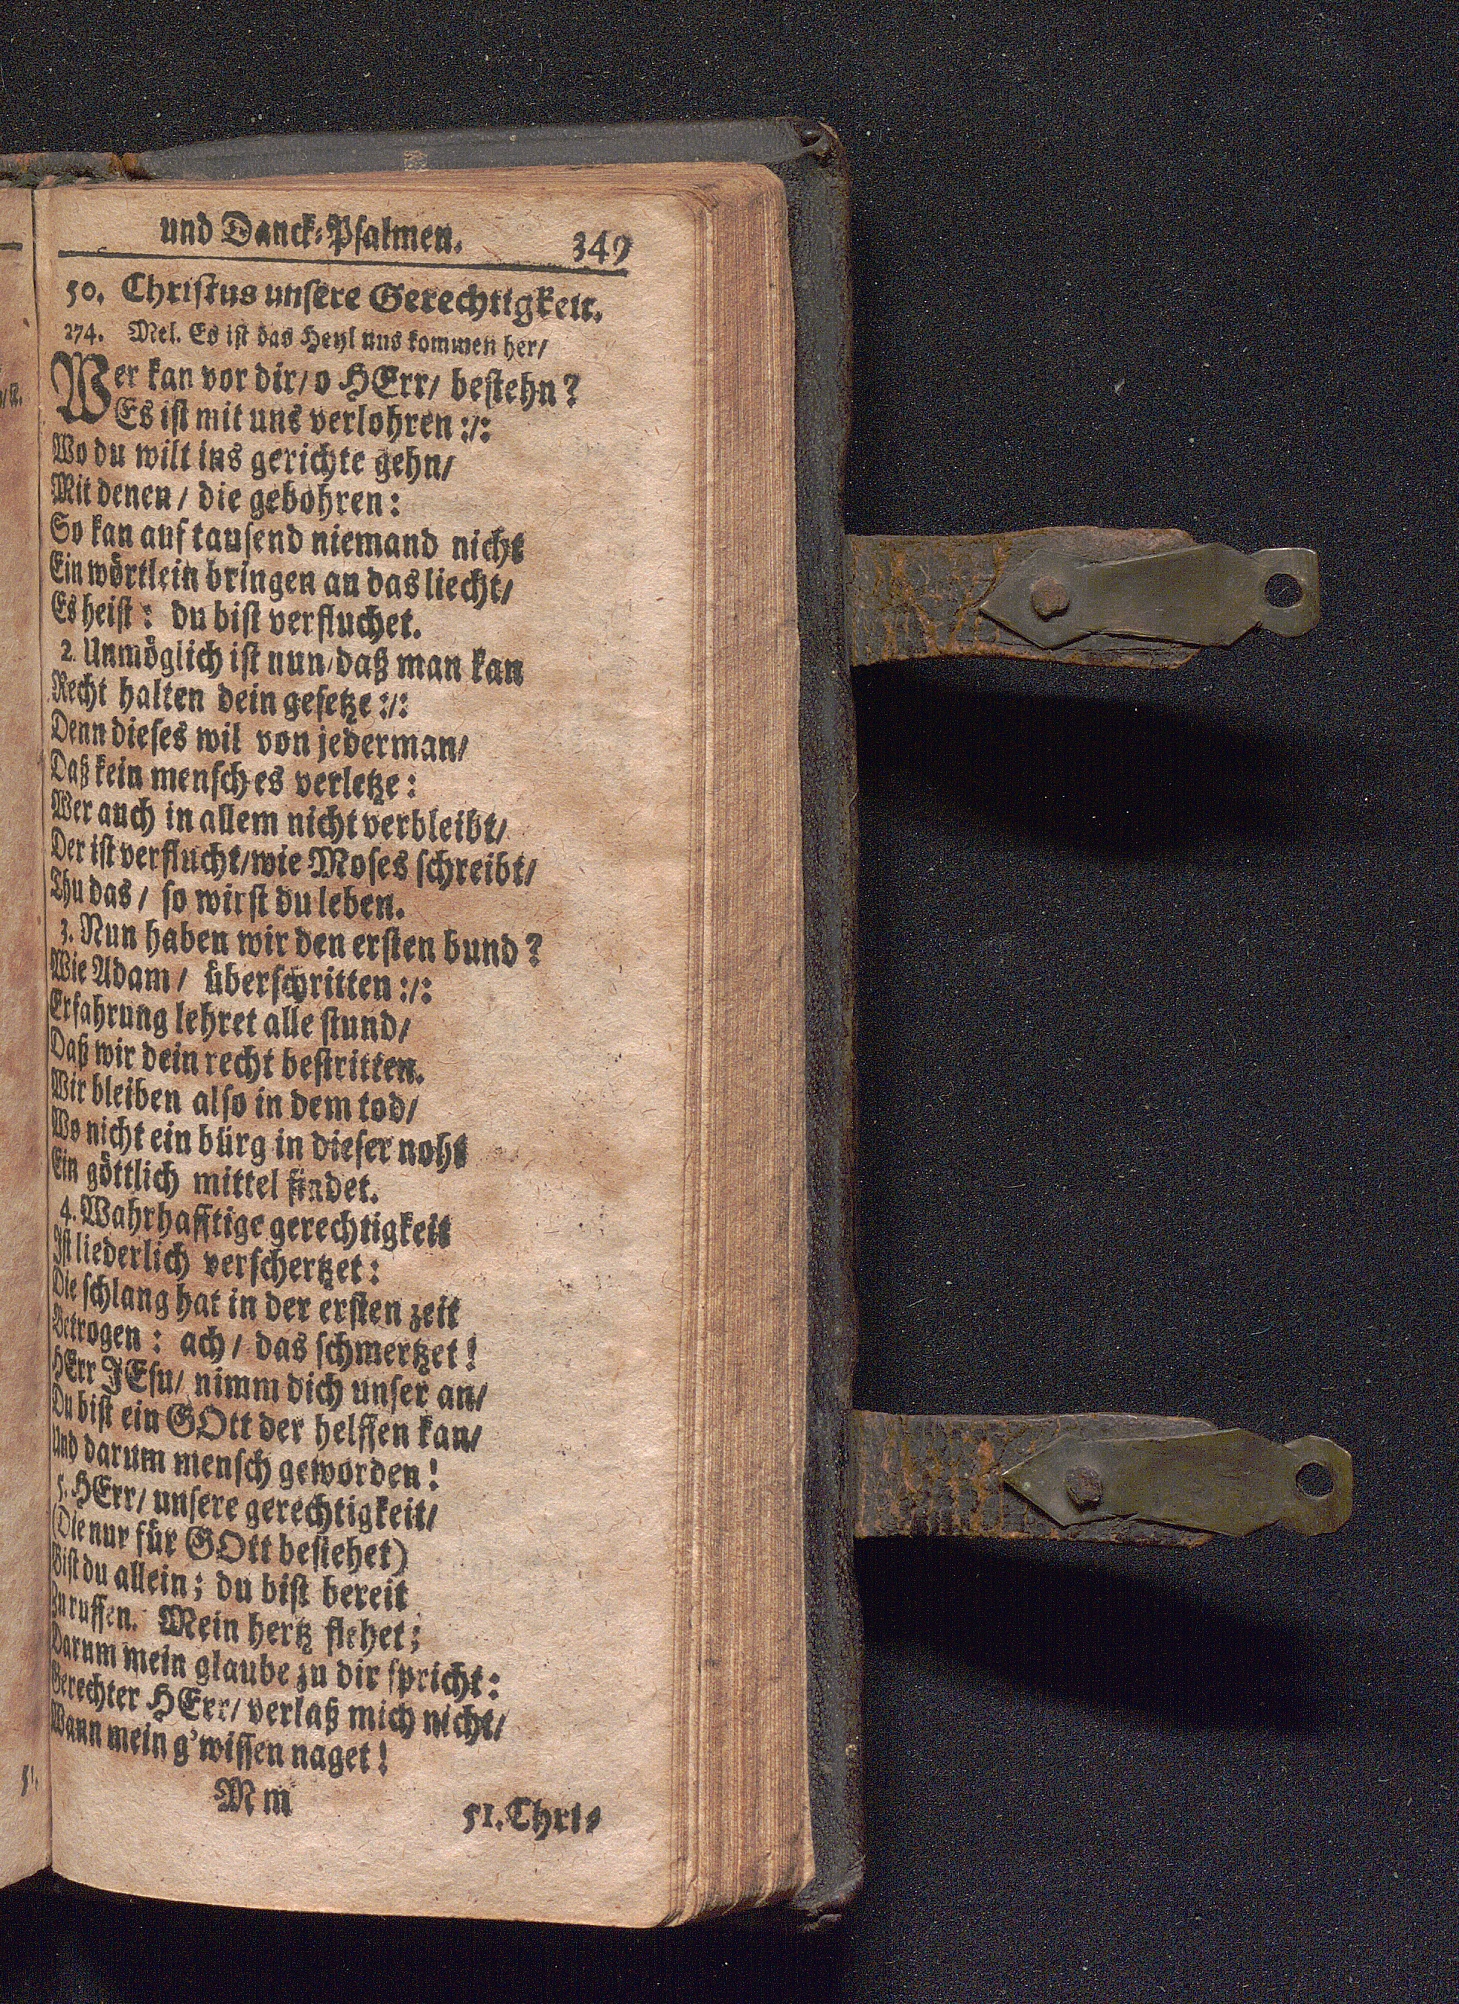 und Danck-Psalmen. 349
50. Christus unsere Gerechtigkeit.
274. Mel. Es ist das Heyl uns kommen her/
Wer kan vor dir/ o HErr/ bestehn?
Es ist mit uns verlohren :/:
Wo du wilt ins gerichte gehn/
Mit denen / die gebohren:
So kan auf tausend niemand nicht
Ein wörtlein bringen an das liecht/
Es heist: du bist verfluchet.
2. Unmöglich ist nun/daß man kan
Recht halten dein gesetze :/:
Denn dieses wil von jederman/
Daß kein mensch es verletze:
Wer auch in allem nicht verbleibt/
Der ist verflucht/wie Moses schreibt/
Thu das / so wirst du leben.
3. Nun haben wir den ersten bund?
Wie Adam / überschritten :/:
Erfahrung lehret alle stund/
Daß wir dein recht bestritten.
Wir bleiben also in dem tod/
Wo nicht ein bürg in dieser noht
Ein göttlich mittel findet.
4. Wahrhafftige gerechtigkeit
Ist liederlich verschertzet:
Die schlang hat in der ersten zeit
Betrogen: ach / das schmertzet!
HErr JEsu/ nimm dich unser an/
Du bist ein GOtt der helffen kan/
Und darum mensch geworden!
5. HErr/ unsere gerechtigkeit/
(Die nur für GOtt bestehet)
Bist du allein; du bist bereit
Zu ruffen. Mein hertz flehet;
Darum mein glaube zu dir spricht:
Gerechter HErr/ verlaß mich nicht/
Wann mein g'wissen naget!
M m 51. Chri-